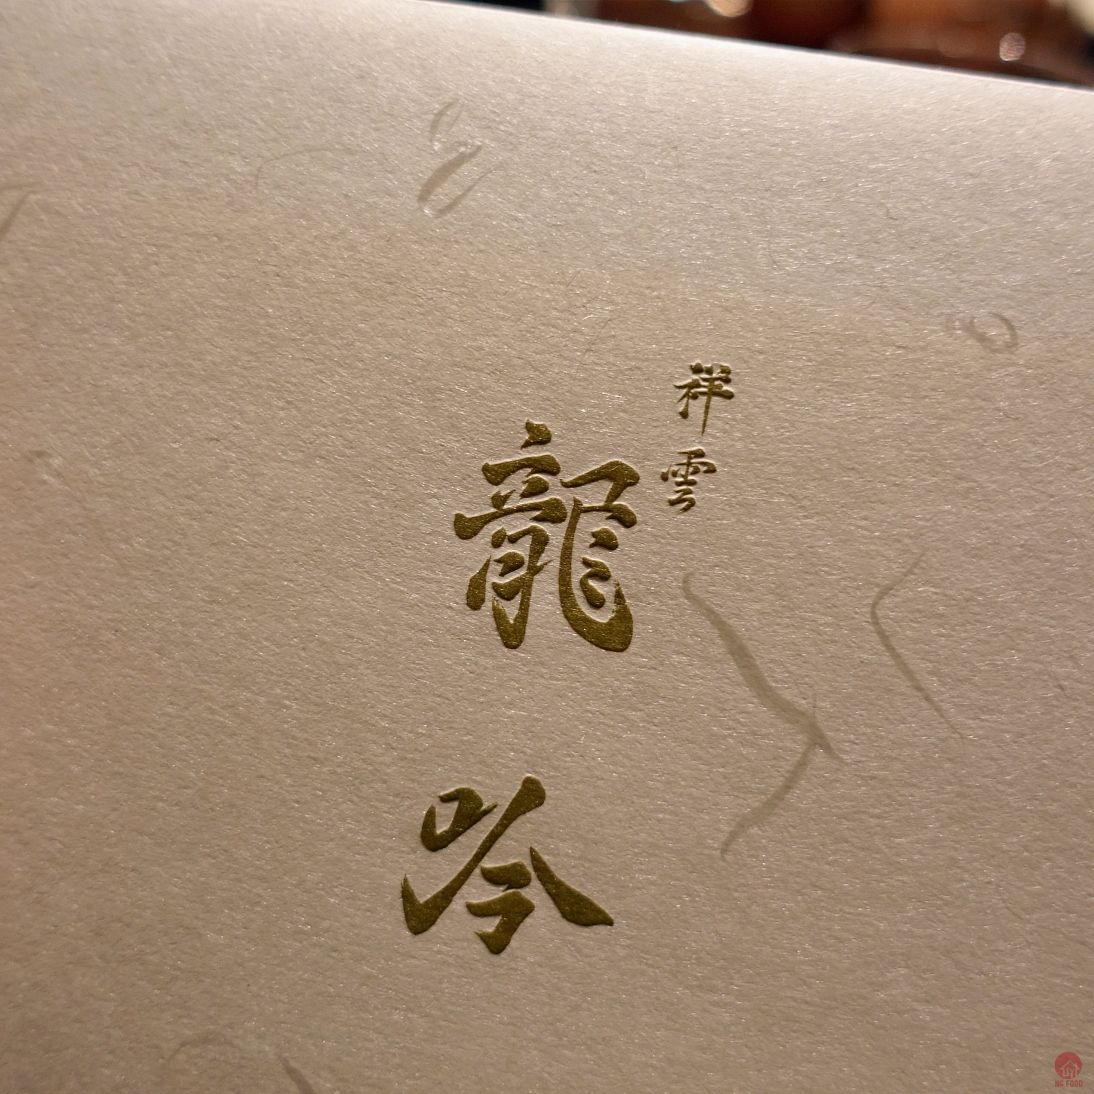 祥雲
龍吟
NG FOOD